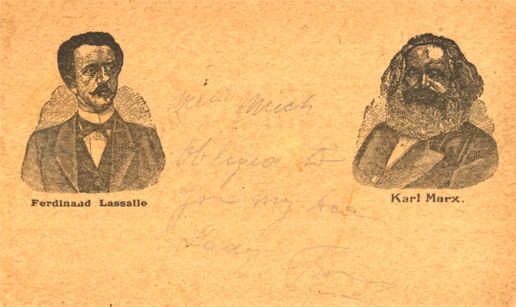 Much
obliged to
you my dear
Lady
Ferdinand Lassalle
Karl Marx.